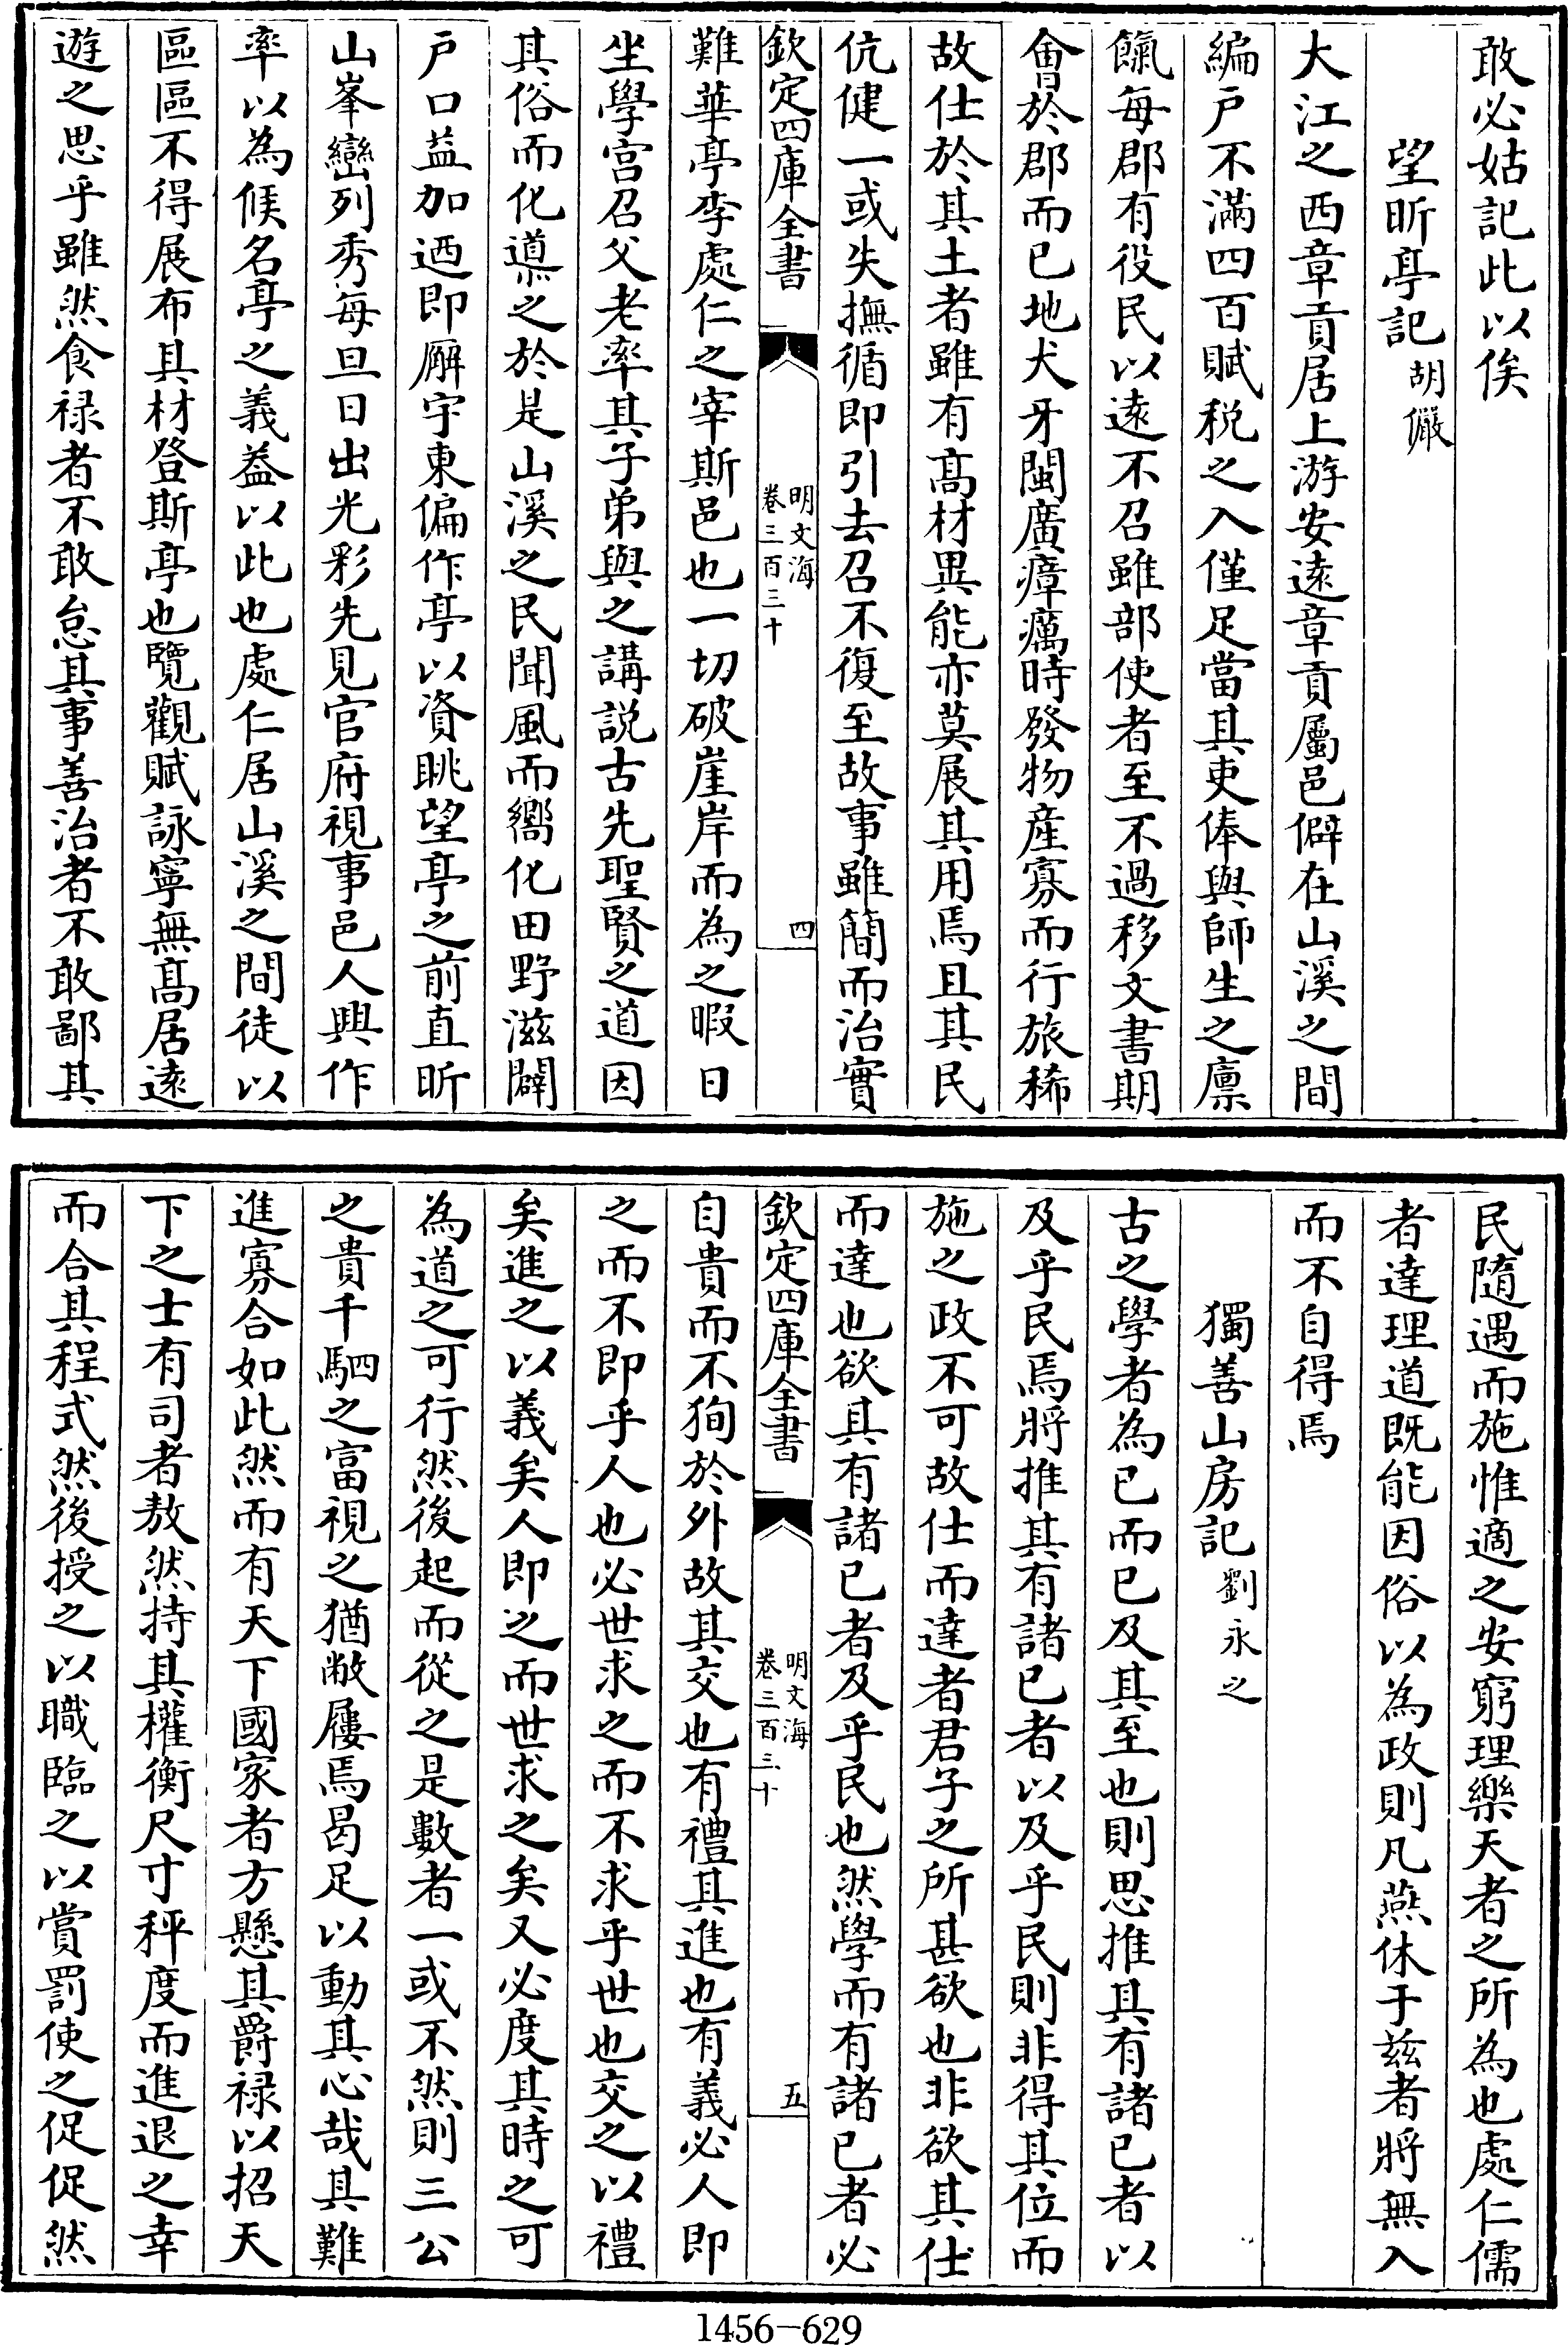 敢必姑記此以俟
望昕亭記胡儼
大江之西章貢居上游安遠章貢屬邑僻在山溪之間
編戶不滿四百賦税之入僅足當其吏俸與師生之廪
餼每郡有役民以遠不召雖部使者至不過移文書期
㑹於郡而已地犬牙閩廣瘴癘時發物産寡而行旅稀
故仕於其土者雖有髙材異能亦莫展其用焉且其民
伉健一或失撫循即引去召不復至故事雖簡而治實
欽定四庫全書
明文海
卷三百三十
四
難華亭李處仁之宰斯邑也一切破崖岸而為之暇日
坐學宮召父老率其子弟與之講説古先聖賢之道因
其俗而化導之於是山溪之民聞風而嚮化田野滋闢
戶口益加迺即廨宇東偏作亭以資眺望亭之前直昕
山峯巒列秀每旦日出光彩先見官府視事邑人興作
率以為候名亭之義葢以此也處仁居山溪之間徒以
區區不得展布其材登斯亭也覽觀賦詠寧無髙居遠
遊之思乎雖然食禄者不敢怠其事善治者不敢鄙其
民隨遇而施惟適之安窮理樂天者之所為也處仁儒
者達理道既能因俗以為政則凡燕休于兹者將無入
而不自得焉
獨善山房記劉永之
古之學者為已而已及其至也則思推其有諸已者以
及乎民焉將推其有諸已者以及乎民則非得其位而
施之政不可故仕而達者君子之所甚欲也非欲其仕
而達也欲其有諸已者及乎民也然學而有諸已者必
欽定四庫全書
明文海
卷三百三十
五
自貴而不狥於外故其交也有禮其進也有義必人即
之而不即乎人也必世求之而不求乎世也交之以禮
矣進之以義矣人即之而世求之矣又必度其時之可
為道之可行然後起而從之是數者一或不然則三公
之貴千駟之富視之猶敝屨焉曷足以動其心哉其難
進寡合如此然而有天下國家者方懸其爵禄以招天
下之士有司者敖然持其權衡尺寸秤度而進退之幸
而合其程式然後授之以職臨之以賞罰使之促促然
1456-629